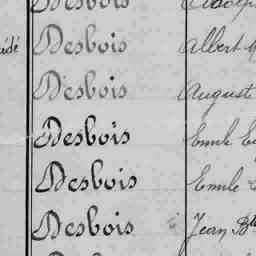 Desbois
Desbois Albert
Desbois August
Desbois Emile
Desbois Emile
Desbois Jean Bte